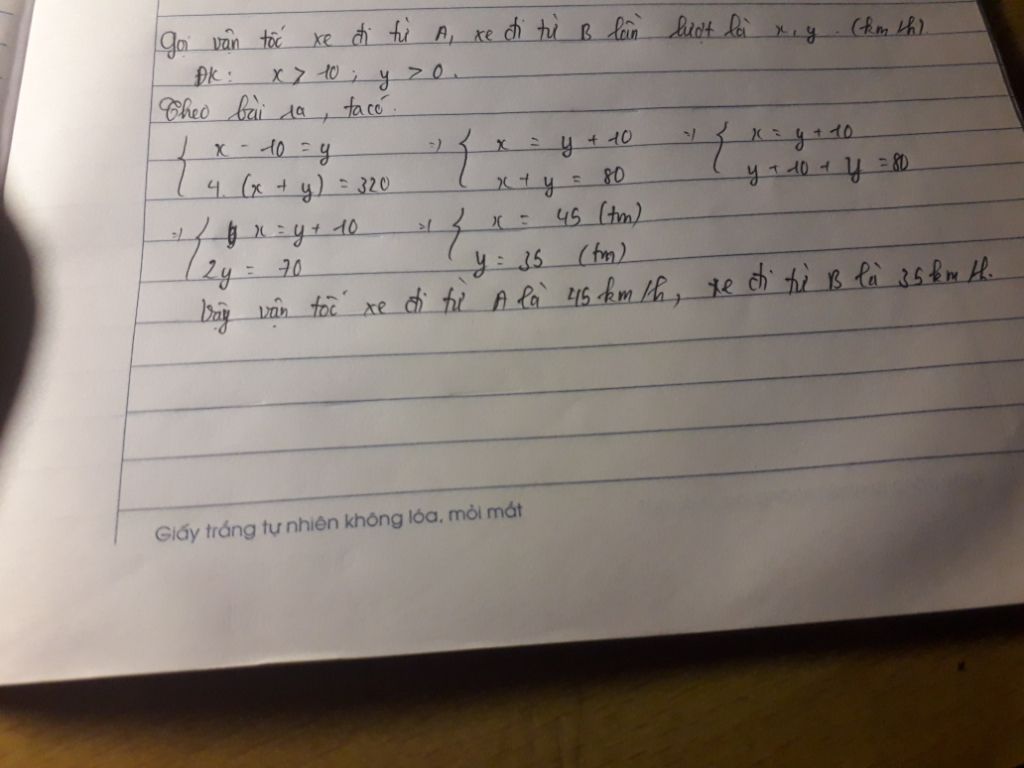 Gọi vận tốc xe đi từ A, xe đi từ B lần lượt là x, y. (km/h)
ĐK: x > 10; y > 0.
Theo bài ra, ta có.
{ x - 10 = y => { x = y + 10 => { x = y + 10
4. (x + y) = 320 x + y = 80 y + 10 + y = 80
=> { x = y + 10 => { x = 45 (tm)
2y = 70 y = 35 (tm)
Vậy vận tốc xe đi từ A là 45 km/h, xe đi từ B là 35 km/h.
Giấy trắng tự nhiên không lóa, mỏi mắt